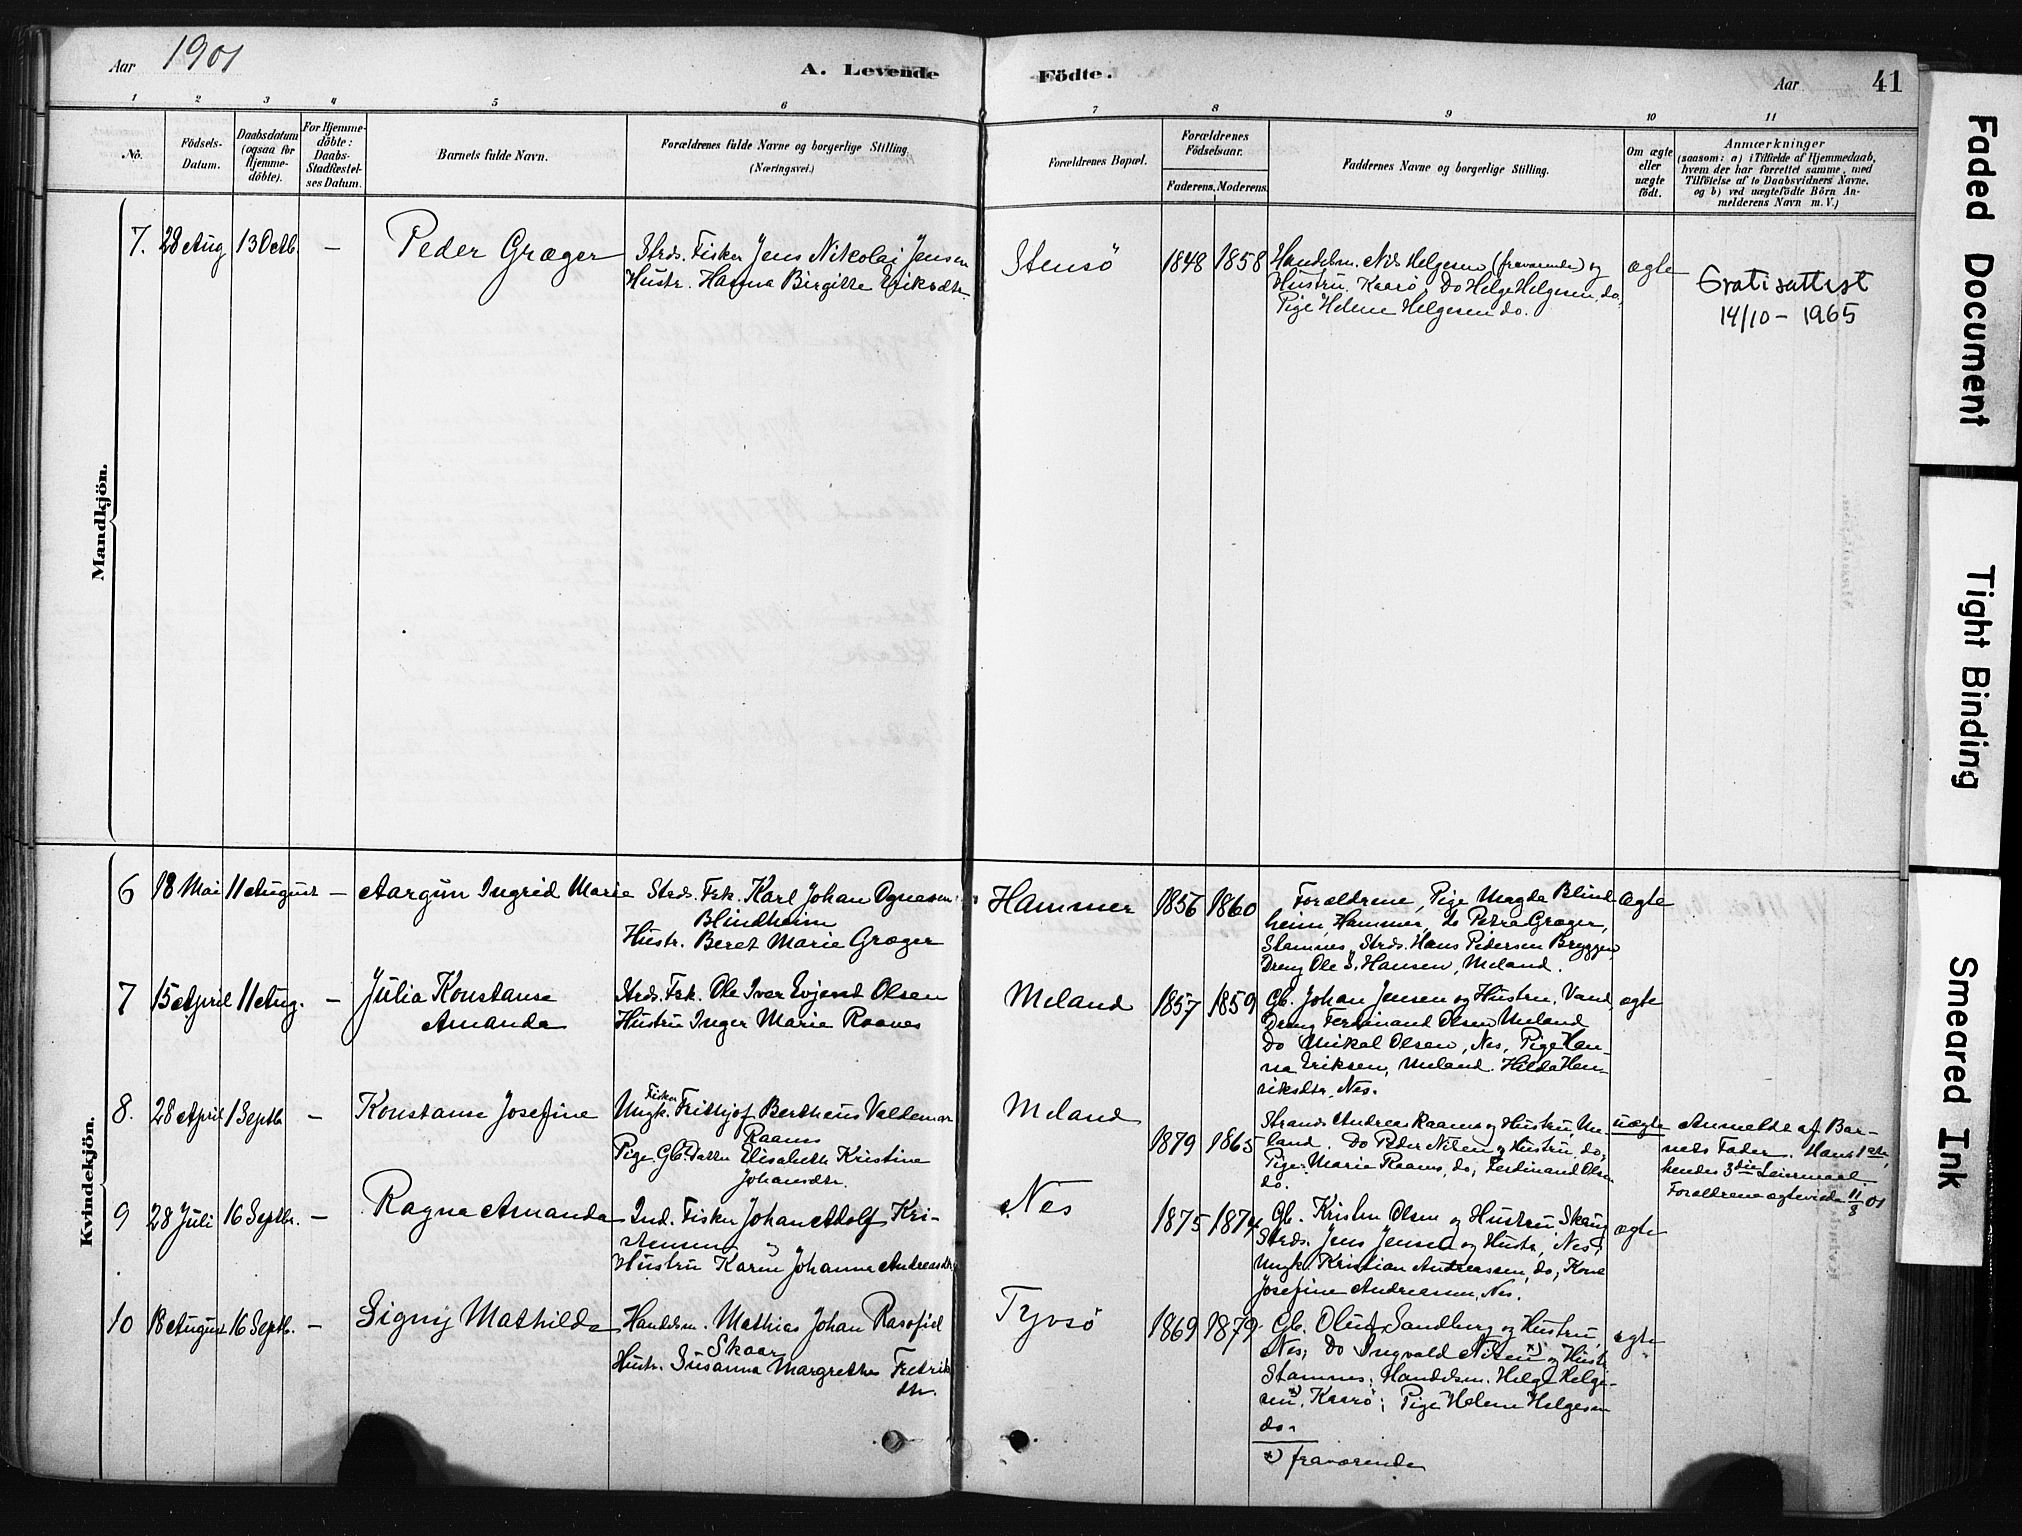 Aar 1901
A. Levende Födte.
Aar 41
1 2 3 4 5 6 7 8 9 10 11
Nö.
Födsels-
Datum.
Daabsdatum
(ogsaa for
Hjemme-
döbte).
For Hjemme-
döbte:
Daabs-
Stadfæstel-
ses Datum.
Barnets fulde Navn.
Forældrenes fulde Navne og borgerlige Stilling
(Næringsvei.)
Forældrenes Bopæl.
Forældrenes
Födselsaar.
Faderens. Moderens.
Faddernes Navne og borgerlige Stilling.
Om ægte
eller
uægte
födt.
Anmærkninger
(saasom: a) i Tilfælde af Hjemmedaab,
hvem der har forrettet samme, med
Tilföielse af to Daabsvidners Navne,
og b) ved uægtefödte Börn An-
melderens Navn m. V.)
Mandkjön.
7. 28 Aug 13 Octb. –
Peder Græger
Strds. Fisker Jens Nikolai Jensen
Hustr. Hanna Birgitte Eriksdtr.
Stensö
1848 1858
Handelsm. Nils Helgesen (fraværende) og
Hustru, Kaarö, Do Helge Helgesen, do.
Pige Helene Helgesen do.
ægte
Gratisattest
14/10 – 1965
Kvindekjön.
6 18 Mai 11 August –
Aargun Ingrid Marie
Strds. Fsk. Karl Johan Agnesen
Blindheim
Hustr. Beret Marie Græger
Hammer
1856 1860
Forældrene, Pige Magda Blind
heim, Hammer, do Petra Græger,
Stamnes, Strds. Hans Pedersen Bryggen
Dreng Ole S. Hansen, Meland.
ægte
7 15 April 11 Aug. –
Julia Konstanse
Amanda
Strds. Fsk. Ole Iver Evjent Olsen
Hustru Inger Marie Raanes
Meland
1857 1859
Gb. Johan Jensen og Hustru, Vand,
Dreng Ferdinand Olsen Meland
Do Mikal Olsen, Nes, Pige Han-
na Eriksen, Meland. Hilda Hen-
riksdtr, Nes.
ægte
8. 28 April 1 Septb –
Konstanse Josefine
Fisker
Ungk. Frithjof Bertheus Valdemar
Raanes
Pige. Gb. Datter Elisabeth Kristine
Johansdtr.
Meland
1879 1865
Strands. Andreas Raanes og Hustru, Me-
land. Do Peder Nilsen og Hustru, do;
Pige Marie Raanes, do; Ferdinand Olsen
do.
uægte
Anmeldt af Bar-
nets Fader. Hans 1ste,
hendes 3die Leiermaal.
Forældrene ægteviede 11/8 01
9 28 Juli 16 Septbr. –
Ragna Amanda
Ind. Fisker Johan Adolf Kri-
stensen og
Hustru Karen Johanna Andreasdtr
Nes
1875 1874
Gb. Kristen Olsen og Hustru Skaug
Strds. Jens Jensen og Hustr, Nes;
Ungk. Kristian Andreassen, do; Kone
Josefine Andreassen, Nes.
ægte
10 18 August 16 Septb. –
Signy Mathilde
Handelsm. Mathias Johan Rasofiel
Skaar
Hustr. Susanna Margrethe Fredrik
dtr.
Tyvsö
1869 1879
Gb. Oluf Sandberg og Hustru,
Nes; Do Ingvald Nilsen *) og Hustr
Stamnes; Handelsm. Helge Helge-
sen *), Kaarö; Pige Helene Helgesen
do.
*) fraværende
ægte
Faded Document
Tight Binding
Smeared Ink